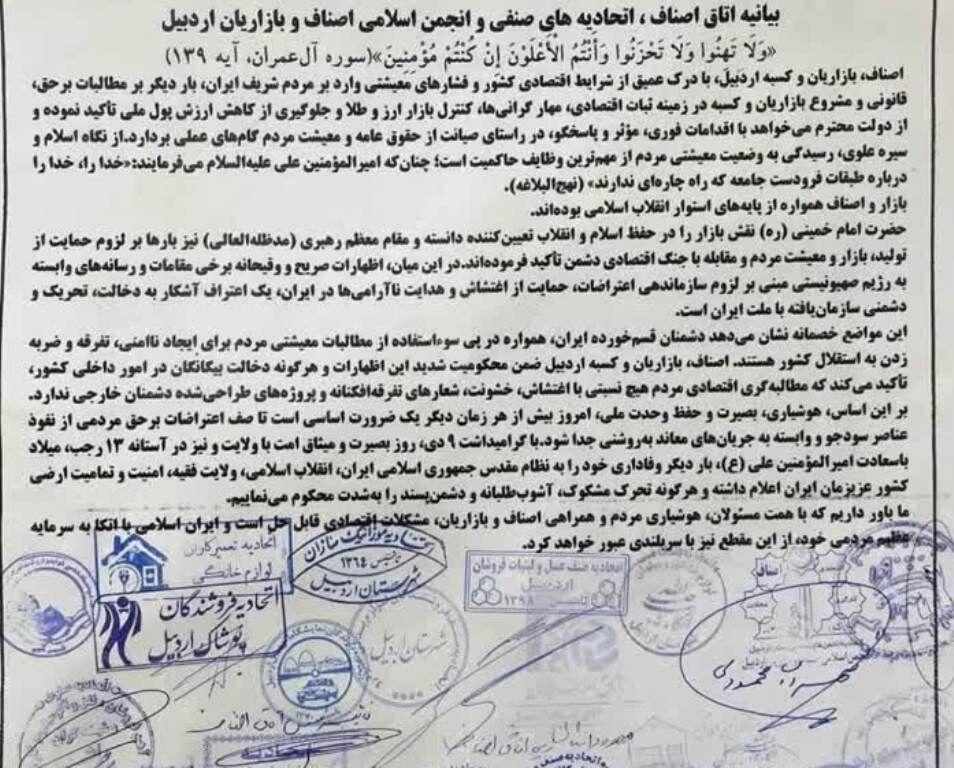 بیانیه اتاق اصناف، اتحادیه های صنفی و انجمن اسلامی اصناف و بازاریان اردبیل
«وَلَا تَهِنُوا وَلَا تَحْزَنُوا وَأَنْتُمُ الْأَعْلَوْنَ إِنْ كُنْتُمْ مُؤْمِنِينَ»(سوره آل‌عمران، آیه ۱۳۹)
اصناف، بازاریان و کسبه اردبیل، با درک عمیق از شرایط اقتصادی کشور و فشارهای معیشتی وارد بر مردم شریف ایران، بار دیگر بر مطالبات برحق،
قانونی و مشروع بازاریان و کسبه در زمینه ثبات اقتصادی، مهار گرانی‌ها، کنترل بازار ارز و طلا و جلوگیری از کاهش ارزش پول ملی تأکید نموده و
از دولت محترم می‌خواهد با اقدامات فوری، مؤثر و پاسخگو، در راستای صیانت از حقوق عامه و معیشت مردم گام‌های عملی بردارد.از نگاه اسلام و
سیره علوی، رسیدگی به وضعیت معیشتی مردم از مهم‌ترین وظایف حاکمیت است؛ چنان‌که امیرالمؤمنین علی علیه‌السلام می‌فرمایند:«خدا را، خدا را
درباره طبقات فرودست جامعه که راه چاره‌ای ندارند» (نهج‌البلاغه).
بازار و اصناف همواره از پایه‌های استوار انقلاب اسلامی بوده‌اند.
حضرت امام خمینی (ره) نقش بازار را در حفظ اسلام و انقلاب تعیین‌کننده دانسته و مقام معظم رهبری (مدظله‌العالی) نیز بارها بر لزوم حمایت از
تولید، بازار و معیشت مردم و مقابله با جنگ اقتصادی دشمن تأکید فرموده‌اند.در این میان، اظهارات صریح و وقیحانه برخی مقامات و رسانه‌های وابسته
به رژیم صهیونیستی مبنی بر لزوم سازماندهی اعتراضات، حمایت از اغتشاش و هدایت ناآرامی‌ها در ایران، یک اعتراف آشکار به دخالت، تحریک و
دشمنی سازمان‌یافته با ملت ایران است.
این مواضع خصمانه نشان می‌دهد دشمنان قسم‌خورده ایران، همواره در پی سوءاستفاده از مطالبات معیشتی مردم برای ایجاد ناامنی، تفرقه و ضربه
زدن به استقلال کشور هستند. اصناف، بازاریان و کسبه اردبیل ضمن محکومیت شدید این اظهارات و هرگونه دخالت بیگانگان در امور داخلی کشور،
تأکید می‌کند که مطالبه‌گری اقتصادی مردم هیچ نسبتی با اغتشاش، خشونت، شعارهای تفرقه‌افکنانه و پروژه‌های طراحی‌شده دشمنان خارجی ندارد.
بر این اساس، هوشیاری، بصیرت و حفظ وحدت ملی، امروز بیش از هر زمان دیگر یک ضرورت اساسی است تا صف اعتراضات برحق مردمی از نفوذ
عناصر سودجو و وابسته به جریان‌های معاند به‌روشنی جدا شود.با گرامیداشت ۹ دی، روز بصیرت و میثاق امت با ولایت و نیز در آستانه ۱۳ رجب، میلاد
باسعادت امیرالمؤمنین علی (ع)، بار دیگر وفاداری خود را به نظام مقدس جمهوری اسلامی ایران، انقلاب اسلامی، ولایت فقیه، امنیت و تمامیت ارضی
کشور عزیزمان ایران اعلام داشته و هرگونه تحرک مشکوک، آشوب‌طلبانه و دشمن‌پسند را به‌شدت محکوم می‌نماییم.
ما باور داریم که با همت مسئولان، هوشیاری مردم و همراهی اصناف و بازاریان، مشکلات اقتصادی قابل حل است و ایران اسلامی با اتکا به سرمایه
عظیم مردمی خود، از این مقطع نیز با سربلندی عبور خواهد کرد.
اتحادیه تعمیرکاران
لوازم خانگی
تاسیس ۱۳۶۴
شهرستان اردبیل
اتحادیه صنف عسل و لبنیات فروشان
اردبیل
تاسیس ۱۳۹۸
اصناف
اتحادیه فروشندگان
پوشاک اردبیل
شهرستان اردبیل